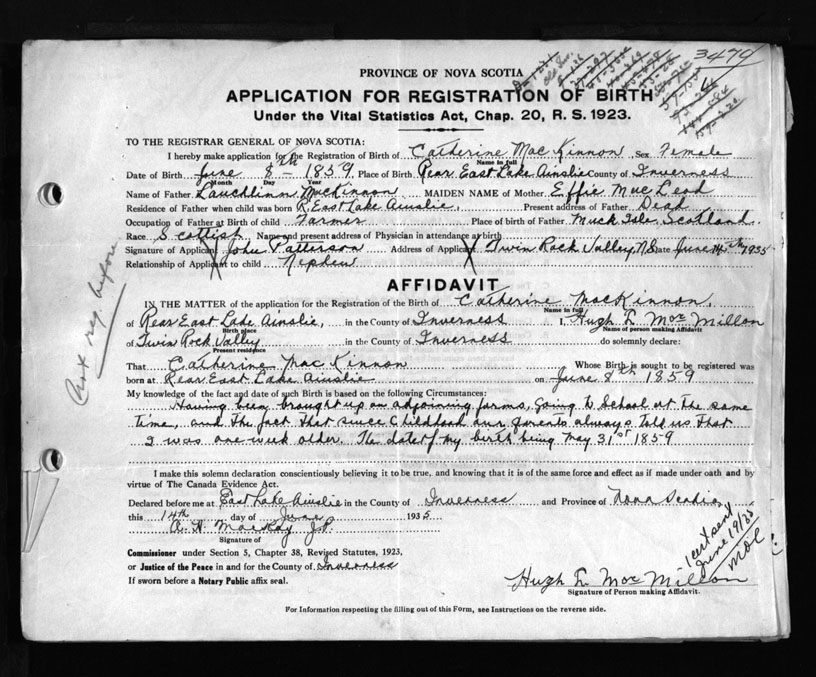 3474
PROVINCE OF NOVA SCOTIA
APPLICATION FOR REGISTRATION OF BIRTH
Under the Vital Statistics Act, Chap. 20, R. S. 1923.
TO THE REGISTRAR GENERAL OF NOVA SCOTIA:
I hereby make application for the Registration of Birth of Catherine Mac Kinnon Sex Female
Name in full
Date of Birth June 8th - 1859. Place of Birth Rear East Lake Ainslie County of Inverness
Month Day Year
Name of Father Lauchlinn MacKinnon MAIDEN NAME of Mother Effie MacLeod
Residence of Father when child was born R. East Lake Ainslie, Present address of Father Dead
Occupation of Father at Birth of child Farmer Place of birth of Father Muck Isle, Scotland.
Race Scottish Name and present address of Physician in attendance at birth
Signature of Applicant John Patterson Address of Applicant Twin Rock Valley, N.S. Date June 14th 1935
Relationship of Applicant to child Nephew
Not reg. before
AFFIDAVIT
IN THE MATTER of the application for the Registration of the Birth of Catherine MacKinnon,
Name in full
of Rear East Lake Ainslie, in the County of Inverness I, Hugh L Mac Millan
Birth place Name of person making Affidavit
of Twin Rock Valley in the County of Inverness do solemnly declare:
Present residence
That Catherine Mac Kinnon Whose Birth is sought to be registered was
born at Rear East Lake Ainslie on June 8th 1859
My knowledge of the fact and date of such Birth is based on the following Circumstances:
Having been brought up on adjoining farms, going to School at the same
time, and the fact that since childhood our parents always told us that
I was one week older. The date of my birth being May 31st 1859
I make this solemn declaration conscientiously believing it to be true, and knowing that it is of the same force and effect as if made under oath and by
virtue of The Canada Evidence Act.
Declared before me at East Lake Ainslie in the County of Inverness and Province of Nova Scotia
this 14th day of June 1935
A. N. MacKay J.P.
Signature of
Commissioner under Section 5, Chapter 38, Revised Statutes, 1923,
or Justice of the Peace in and for the County of Inverness
If sworn before a Notary Public affix seal.
1 cert sent
June 19/35
Hugh L Mac Millan
Signature of Person making Affidavit.
For Information respecting the filling out of this Form, see Instructions on the reverse side.